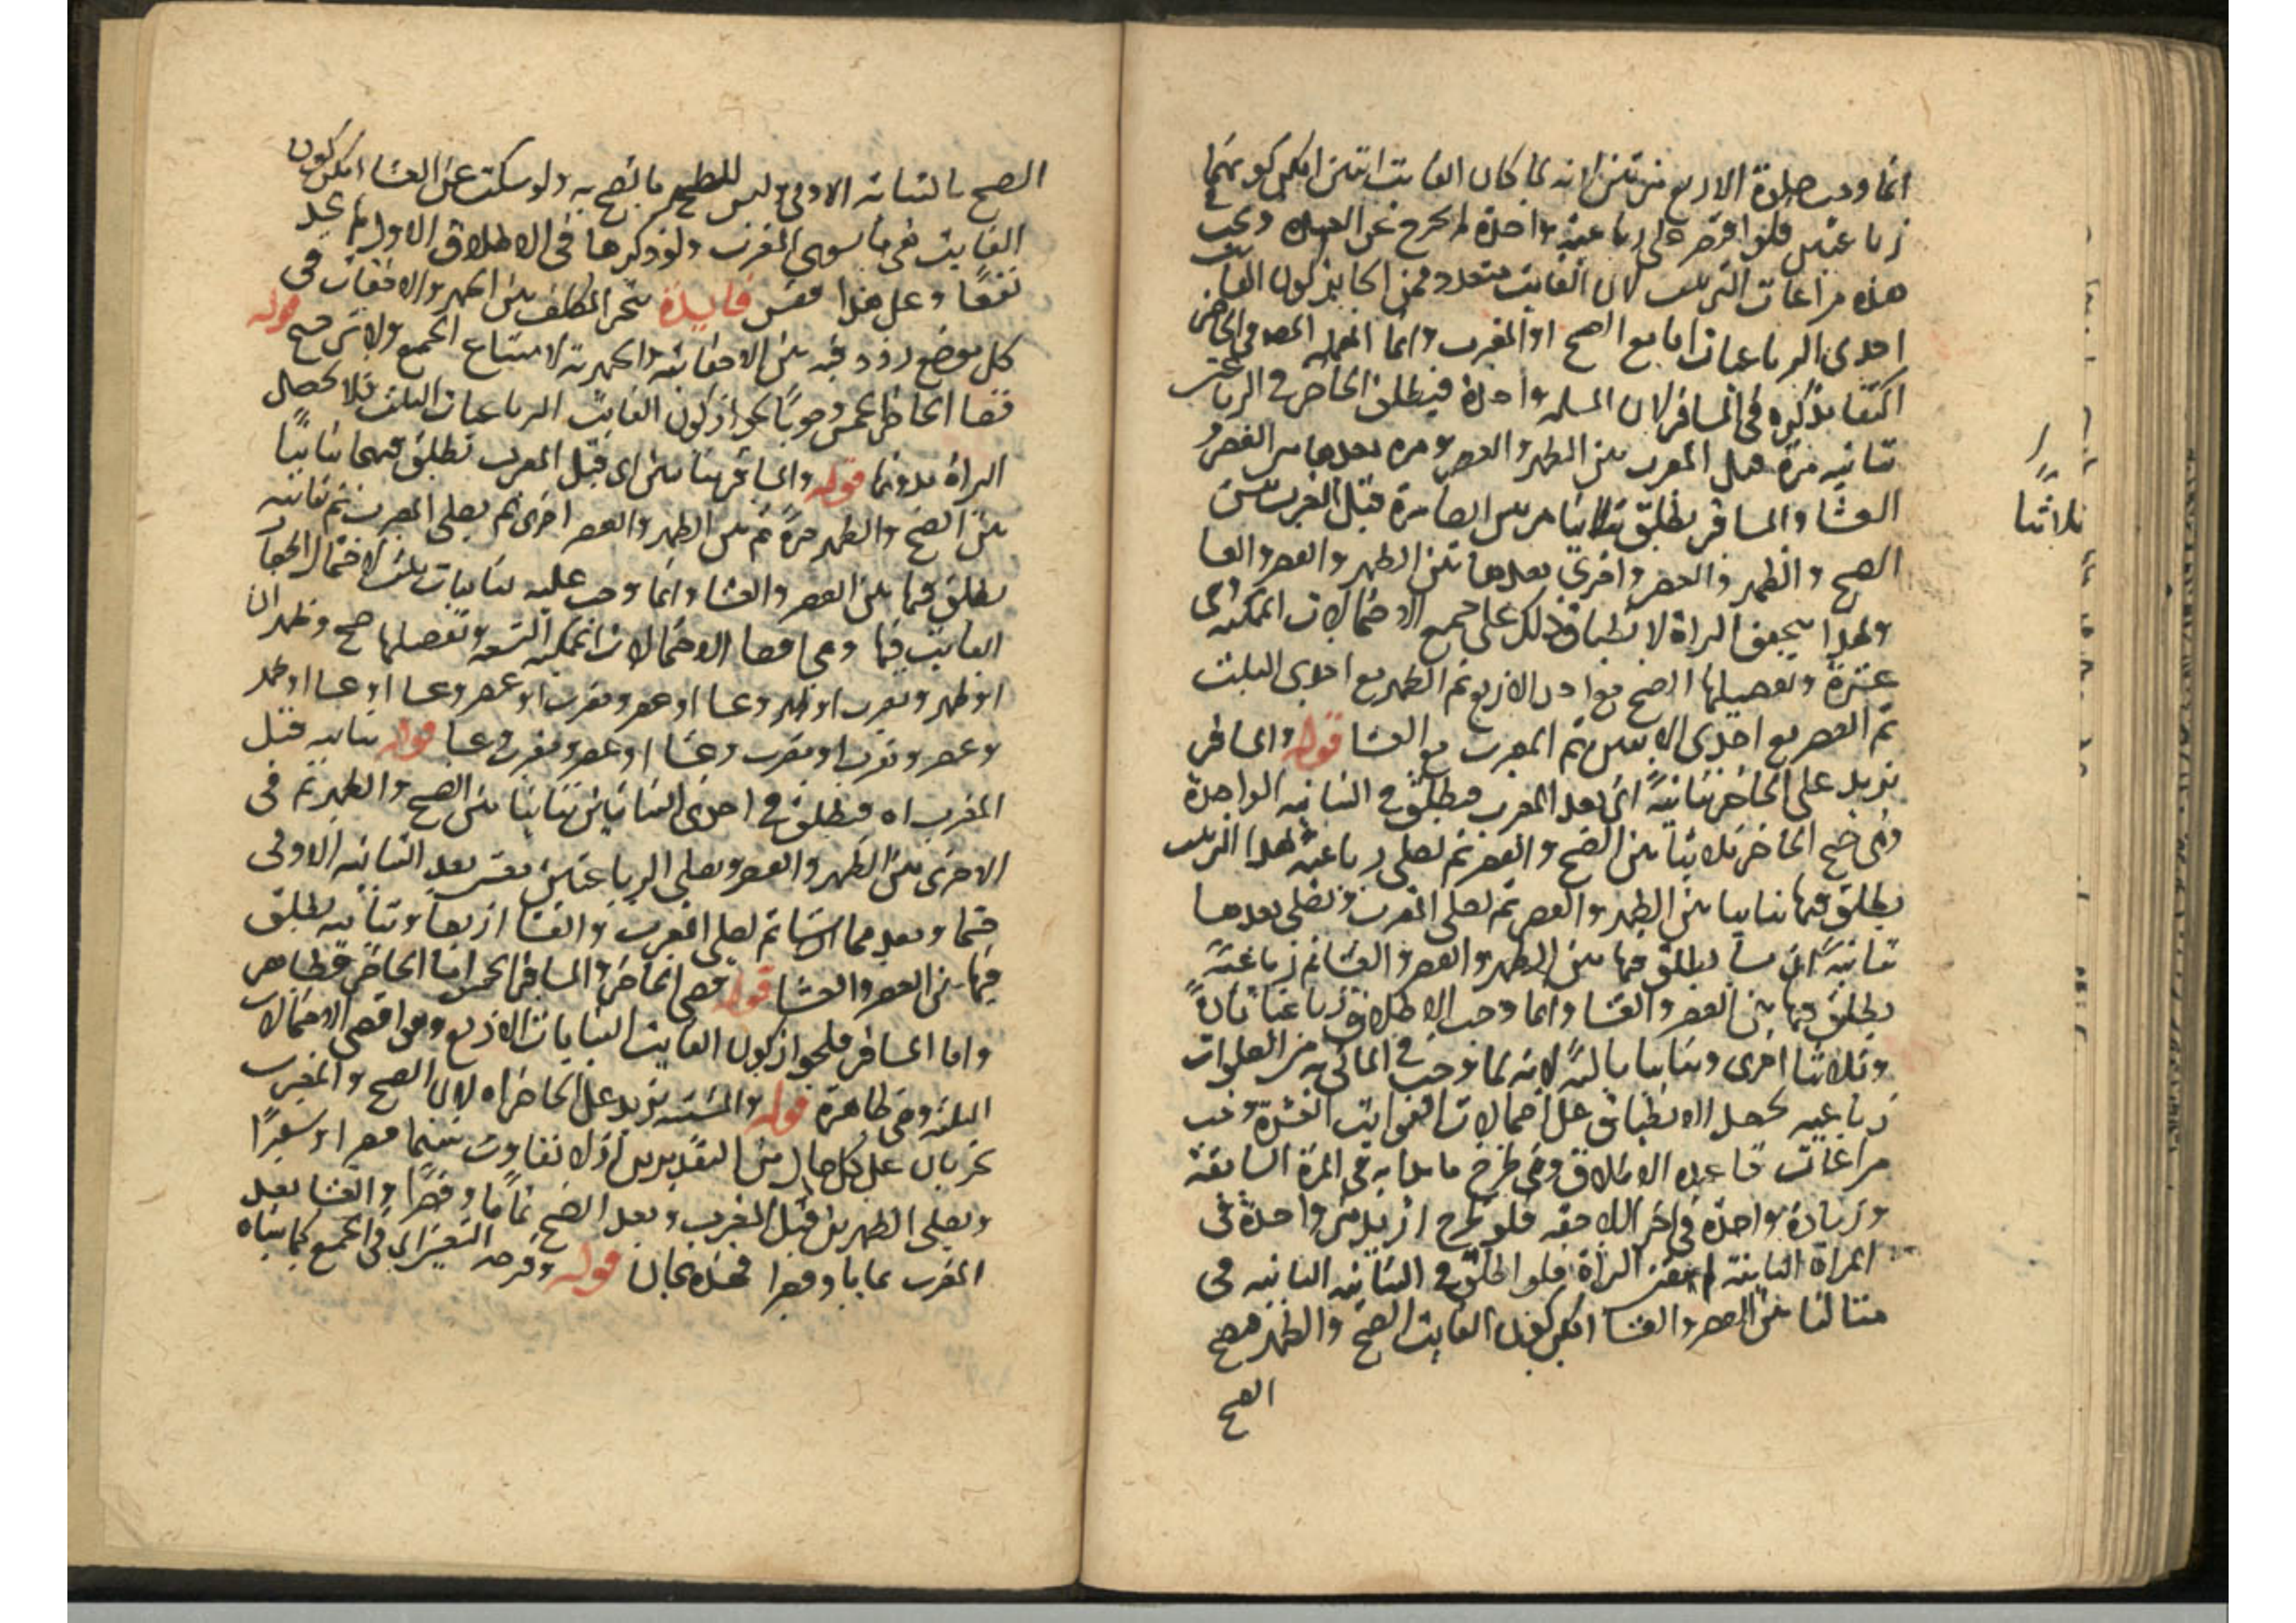 انما وجب صلوة الاربع مرتين لانه لما كان الفايت اثنتين امكن كونهما
رباعيتين فلو اقتصر على رباعية واحدة لم يخرج عن العهدة ويجب
هذه مراعات الترتيب لان الفايت متعدد فمن الجايز كون الفايت
احدى الرباعيات اما مع الصبح او المغرب وانما اهمله المصـ في الحاضر
اكتفا بذكره في المسافر لان المسله واحدة فيطلق الحاضر في الرباعيتين
ثنائيه مرة قبل المغرب بين الظهر والعصر ومره بعدها بين العصر و
العشا والمسافر يطلق ثلاثيا مرتين ايضا مرة قبل المغرب بين
الصبح والظهر والعصر واخرى بعدها بين الظهر والعصر والعشا
ولهذا يتحقق البراة لانطباق ذلك على جميع الاحتمالات الممكنه وهى
عشرة وتفصيلها الصبح مع احدى الاربع ثم الظهر مع احدى الثلث
ثم العصر مع احدى الاثنتين ثم المغرب مع العشا قوله والمسافر
يزيد على الحاضر ثنائيةً اى بعد المغرب فيطلق في الثنائيه الواحدة
وهى صبح الحاضر ثلاثيا بين الصبح والعصر ثم يصلى رباعية لهذا الترتيب
يطلق فيها ثنائيا بين الظهر والعصر ثم يصلى المغرب ويصلى بعدها
ثنائية يطلق فيها بين الظهر والعصر والعشا ثم رباعية
يطلق فيها بين العصر والعشا وانما وجب الاطلاق رباعيا تارةً
وثلاثيا اخرى وثنائيا بالثةً لانه لما وجب في الماتى به من الصلوات
رباعيه تحصل الانطباق على احتمالات الفوايت العشرة وجب
مراعات قاعده الاطلاق وهى طرح ما بدا به في المرة السابقة
وزيادة واحدة في اخر اللاحقه فلو طرح ازيد من واحدة في
المراة الثانية لم يتعين البراة فلو اطلق في الثنائيه الثانيه فى
مثالنا بين العصر والعشا امكن كون الفايت الصبح والظهر فتصح
الصبح
ثلاثيا
الصبح بالثنائيه الاولى وليس للظهر ما يصح به ولو سكت عن العشا امكن كون
الفايت هى ما سوى المغرب ولو ذكرها فى الاطلاق الاول لم يجد
نفعًا وعلى هذا فقس فايدة يتخير المكلف بين الجهر والاخفات فى
كل موضع ردد فيه بين الاخفاتيه والجهريه لامتناع الجمع ولا ترجيح قوله
قضا الحاضر الخمس وجوبًا لجواز كون الفايت الرباعيات الثلث فلا تحصل
البراة بدونها قوله والمسافر ثنائيتين اى قبل المغرب تطلق فيهما ثنائيًا
بين الصبح والظهر مرةً ثم بين الظهر والعصر اخرى ثم يصلى المغرب ثم ثنائيه
يطلق فيها بين العصر والعشا وانما وجب عليه ثنائيات ثلث لاحتمال انحصار
الفايت فيها وهى اقصا الاحتمالات الممكنه التسعه وتفصيلها صبح وظهر ان
او ظهر ومغرب او ظهر وعشا او عصر ومغرب او عصر وعشا او عشا او ظهر
وعصر ومغرب او مغرب وعشا او عصر ومغرب وعشا قوله ثنائيه قبل
المغرب اه فيطلق في احدى الثنائيتين ثنائيا بين الصبح والظهر ثم فى
الاخرى بين الظهر والعصر ويصلى الرباعيتين بعد الثنائيه الاولى
ثم يصلى المغرب والعشا اربعا وثنائيه يطلق
فيها بين العصر والعشا قوله قضى الحاضر والمسافر الخمس اما الحاضر فظاهر
واما المسافر فلجواز كون الفايت الثنائيات الاربع وهو اقصى الاحتمالات
الثلثه وهى ظاهرة قوله والمشتبه يزيد على الحاضر اه لان الصبح والمغرب
تجزيان على كل حال من التقديرين اذ لا تفاوت بينهما حضرا وسفرًا
ويصلى الظهرين قبل المغرب وبعد الصبح تمامًا وقصرًا والعشا بعد
المغرب تماما وقصرا فهذه ثمان قوله وفرضه التعيين اى فى الجميع كما بيناه